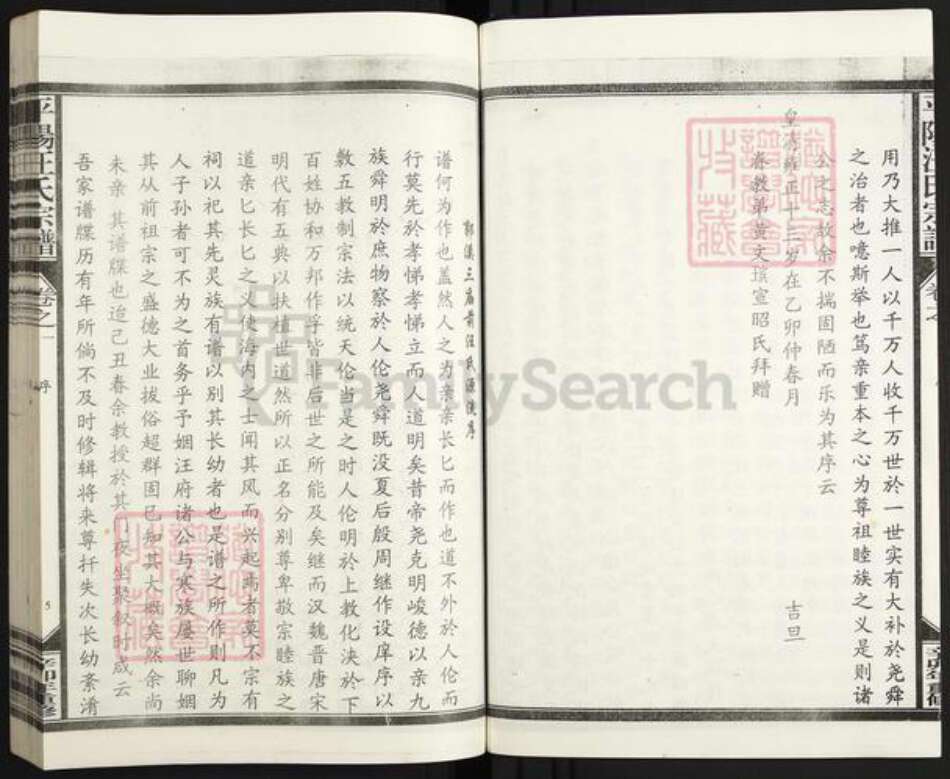 用乃大推一人以千万人收千万世於一世实有大补於尧舜
之治者也噫斯举也笃亲重本之心为尊祖睦族之义是则诸
公之志故余不揣固陋而乐为其序云
皇清雍正十三岁在乙卯仲春月 吉旦
眷教弟黄文璸宣昭氏拜赠
三庙前汪氏源流序
谱何为作也盖然人之为亲亲长匕而作也道不外於人伦而
行莫先於孝悌孝悌立而人道明矣昔帝尧克明峻德以亲九
族舜明於庶物察於人伦尧舜既没夏后殷周继作设庠序以
教五教制宗法以统天伦当是之时人伦明於上教化泱於下
百姓协和万邦作孚皆非后世之所能及矣继而汉魏晋唐宋
明代有五典以扶植世道然所以正名分别尊卑敬宗睦族之
道亲匕长匕之义使海内之士闻其风而兴起焉者莫不宗有
祠以祀其先灵族有谱以别其长幼者也是谱之所作则凡为
人子孙者可不为之首务乎予姻汪府诸公与寒族屡世聊姻
其从前祖宗之盛德大业拔俗超群固已知其大概矣然余尚
未亲其谱牒也迨己丑春余教授於其门夜坐聚叙时咸云
吾家谱牒历有年所倘不及时修辑将来尊扞失次长幼紊淆
平阳汪氏宗谱
卷之一
序
5
平阳汪氏宗谱
FamilySearch